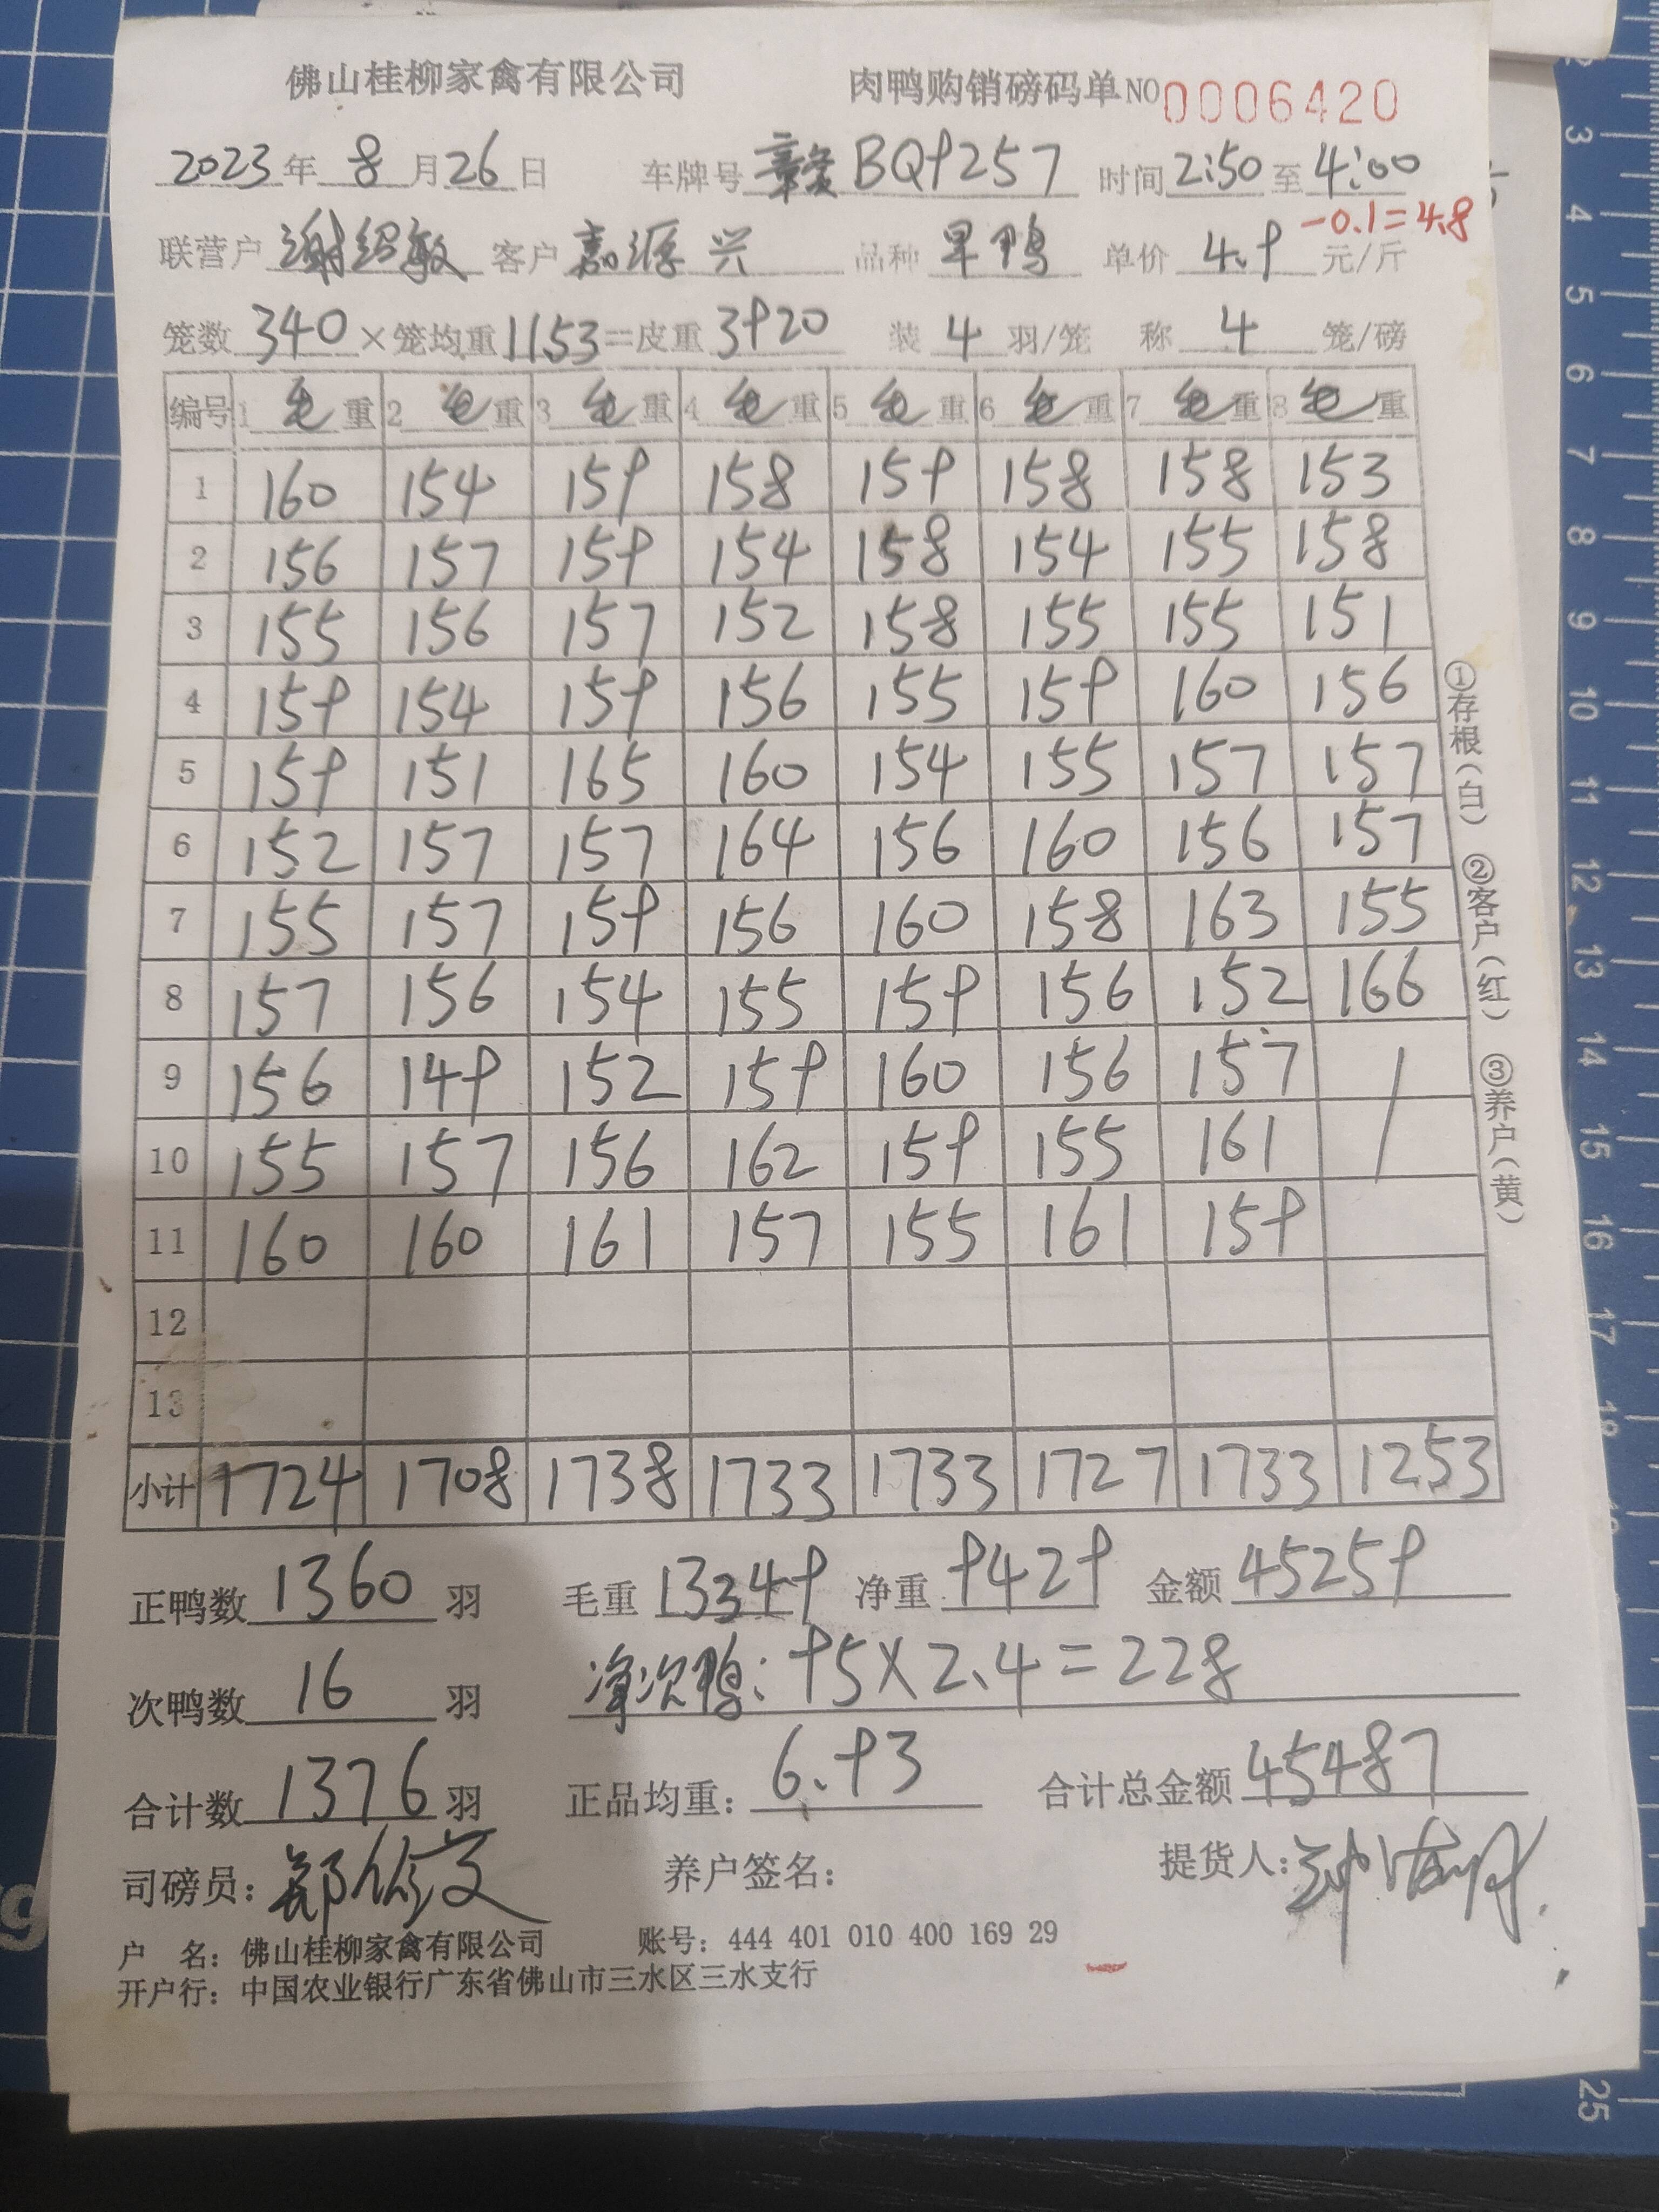 佛山桂柳家禽有限公司 肉鸭购销磅码单 NO 0006420
2023年 8月26日 车牌号 赣BQ9257 时间 2:50 至 4:00
-0.1=4.8
联营户 谢绍敏 客户 嘉源兴 品种 旱鸭 单价 4.9 元/斤
笼数 340 ×笼均重 11.53 =皮重 3920 装 4 羽/笼 称 4 笼/磅
编号 1 毛重 2 毛重 3 毛重 4 毛重 5 毛重 6 毛重 7 毛重 8 毛重
1 160 154 159 158 159 158 158 153
2 156 157 159 154 158 154 155 158
3 155 156 157 152 158 155 155 151
4 159 154 159 156 155 159 160 156
5 159 151 165 160 154 155 157 157
6 152 157 157 164 156 160 156 157
7 155 157 159 156 160 158 163 155
8 157 156 154 155 159 156 152 166
9 156 149 152 159 160 156 157
10 155 157 156 162 159 155 161
11 160 160 161 157 155 161 159
12
13
小计 1724 1708 1738 1733 1733 1727 1733 1253
①存根(白) ②客户(红) ③养户(黄)
正鸭数 1360 羽 毛重 13349 净重 9429 金额 45259
次鸭数 16 羽 净次鸭: 95×2.4=228
合计数 1376 羽 正品均重: 6.93 合计总金额 45487
司磅员: 养户签名: 提货人:
户 名: 佛山桂柳家禽有限公司 账号: 444 401 010 400 169 29
开户行: 中国农业银行广东省佛山市三水区三水支行
3
4
5
6
7
8
9
10
11
12
13
14
15
16
17
25